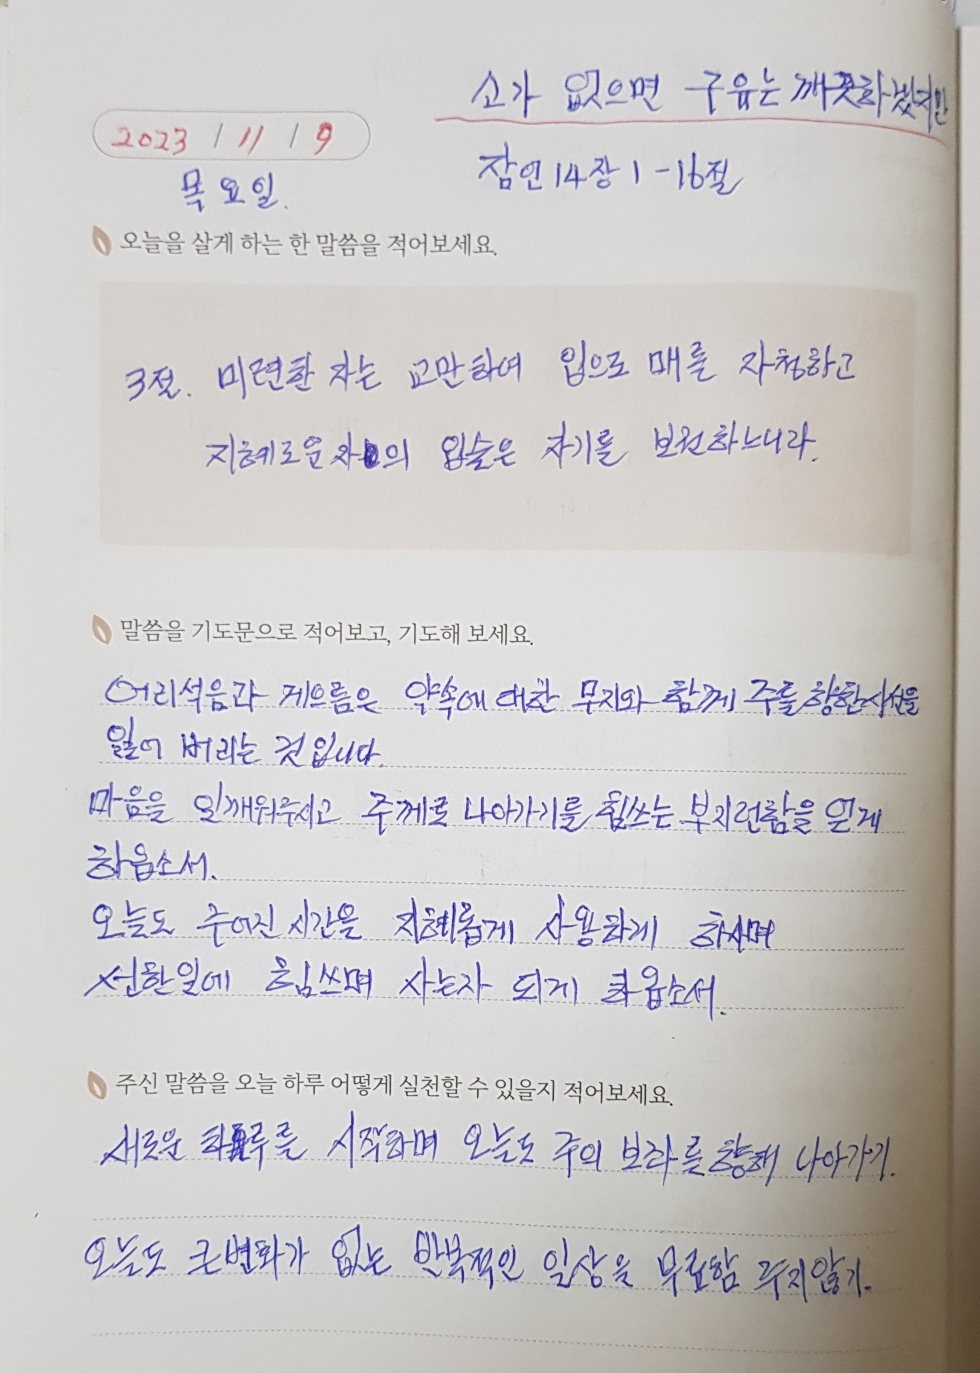 소가 없으면 구유는 깨끗하겠지만
2023 / 11 / 9
목요일.
잠언 14장 1-16절
오늘을 살게 하는 한 말씀을 적어보세요.
3절. 미련한 자는 교만하여 입으로 매를 자청하고
지혜로운 자의 입술은 자기를 보전하느니라.
말씀을 기도문으로 적어보고, 기도해 보세요.
어리석음과 게으름은 약속에 대한 무지와 함께 주를 향한 시선을
잃어 버리는 것입니다.
마음을 일깨워주시고 주께로 나아가기를 힘쓰는 부지런함을 얻게
하옵소서.
오늘도 주어진 시간을 지혜롭게 사용하게 하시며
선한일에 힘쓰며 사는자 되게 하옵소서.
주신 말씀을 오늘 하루 어떻게 실천할 수 있을지 적어보세요.
새로운 하루를 시작하며 오늘도 주의 보좌를 향해 나아가기.
오늘도 큰변화가 없는 반복적인 일상을 무료함 주지않기.